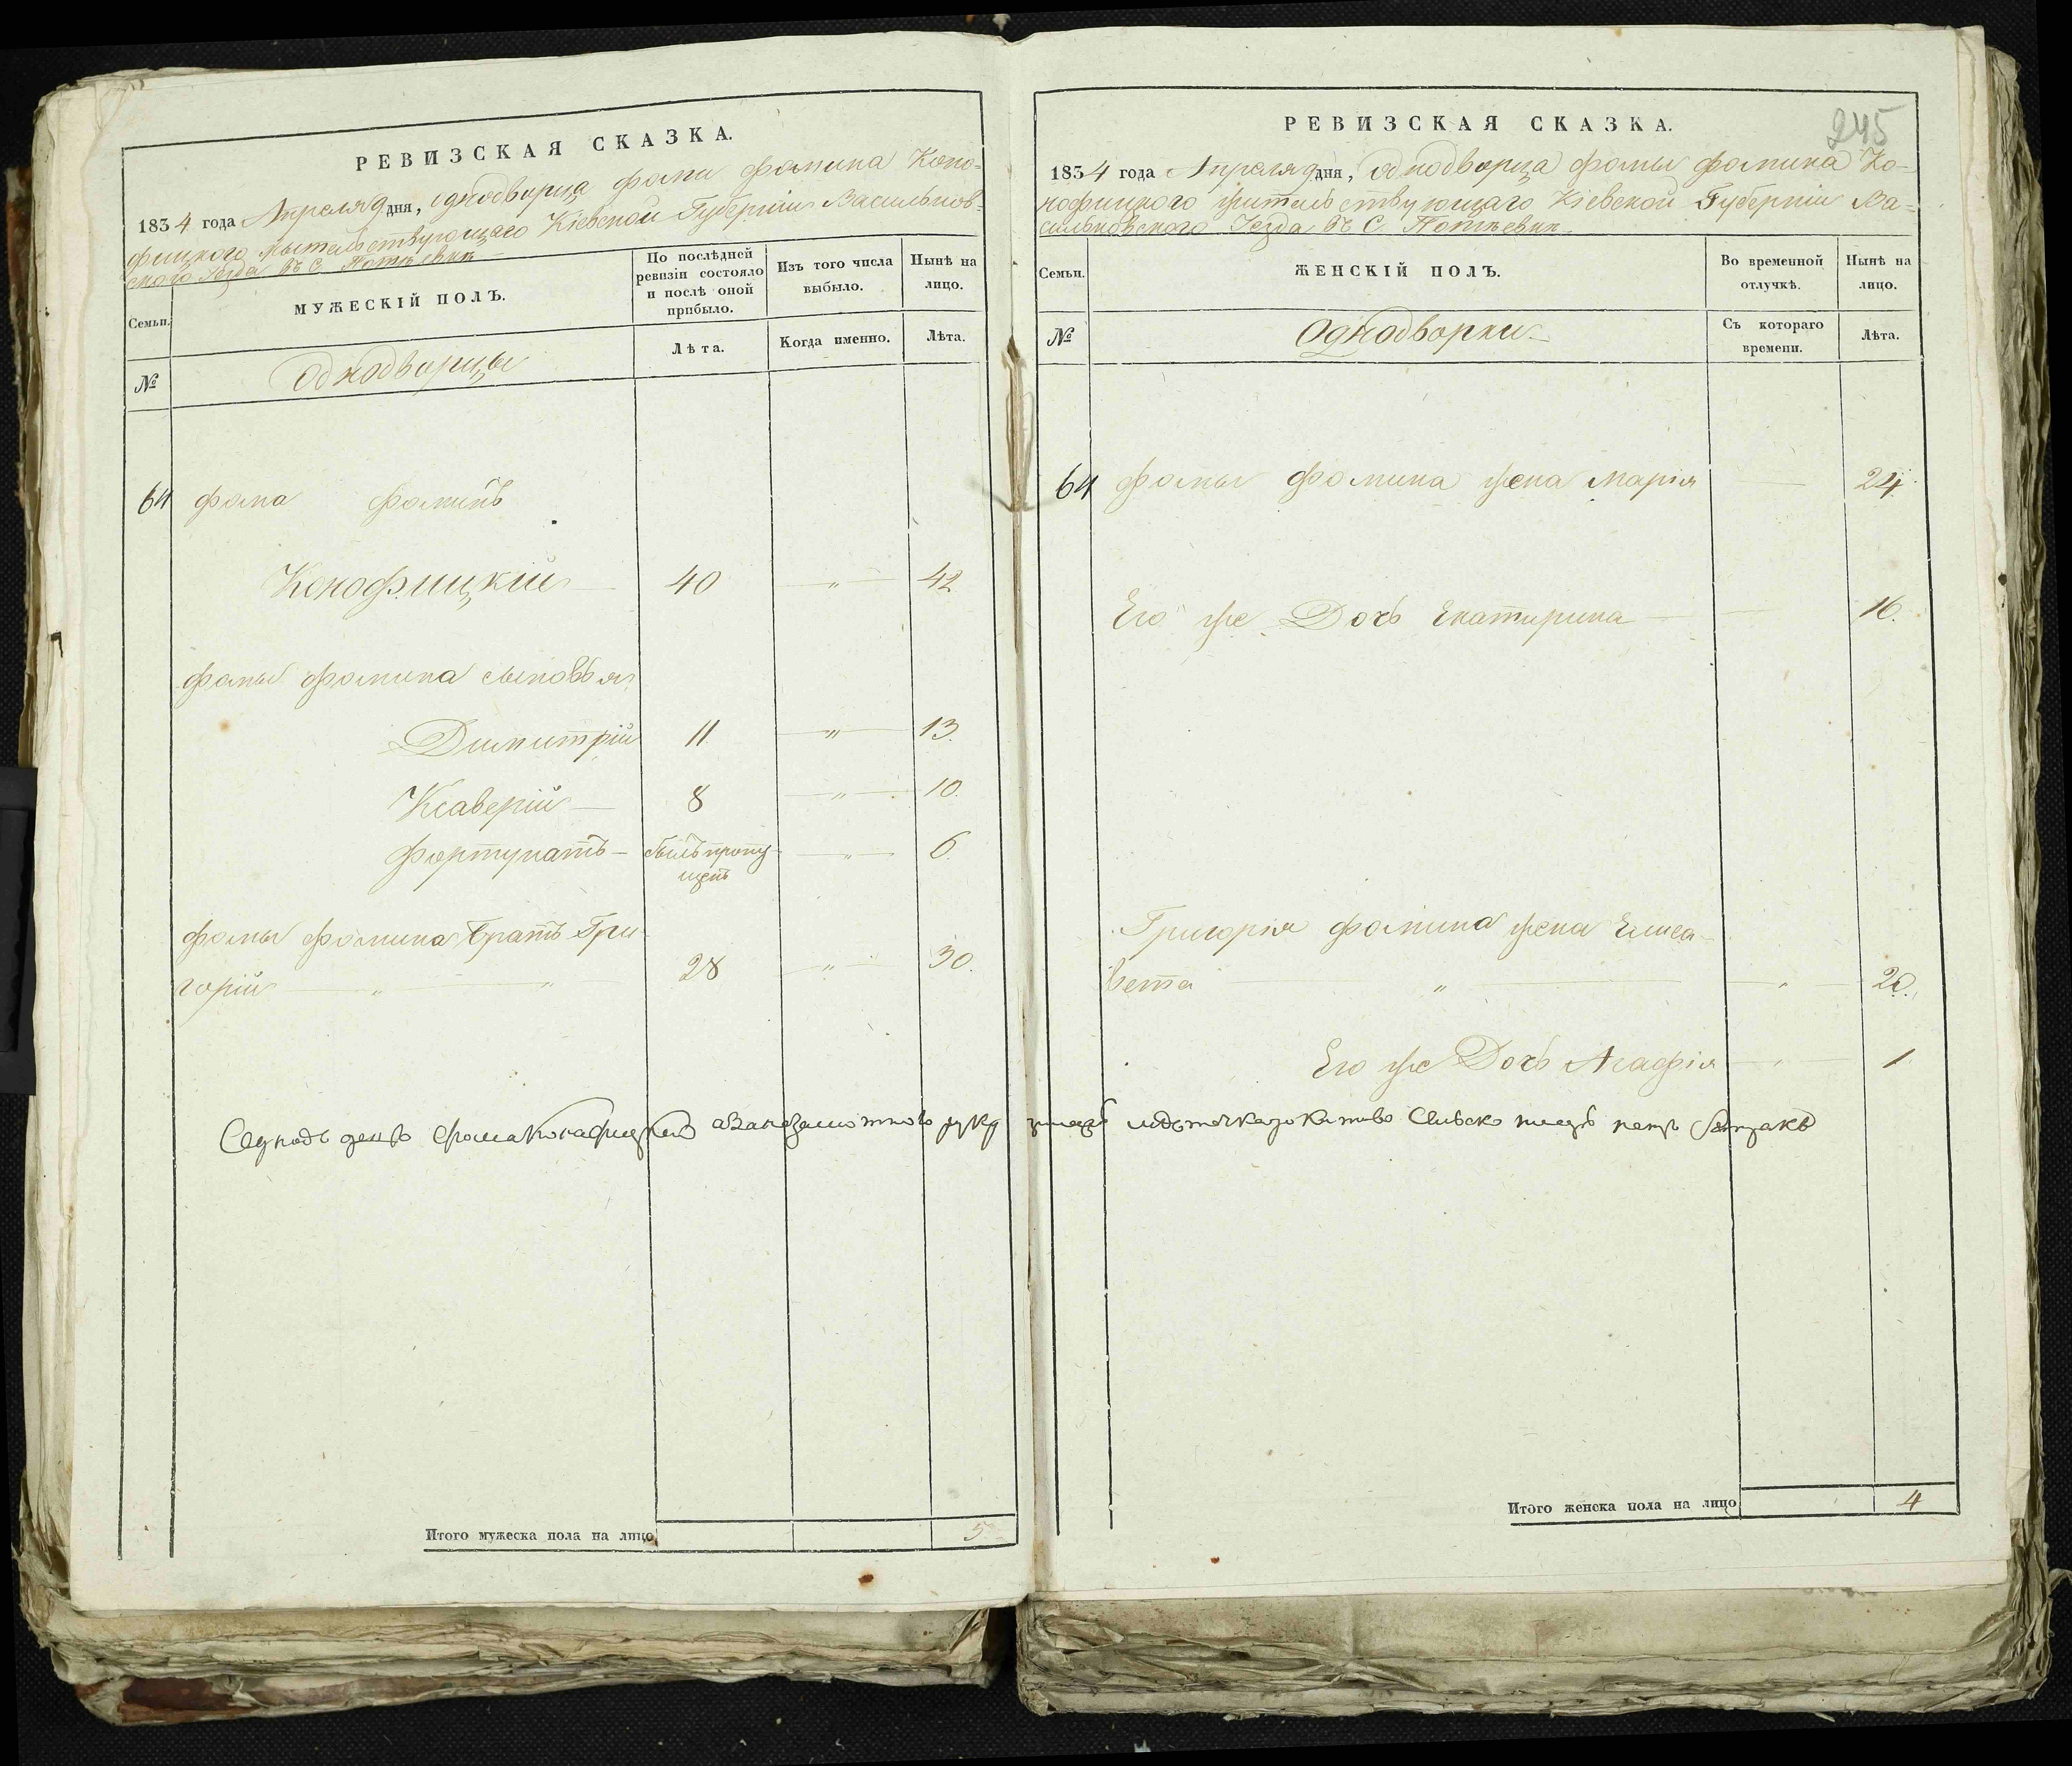 РЕВИЗСКАЯ СКАЗКА.
1834 года Апреля 9 дня, однодворца Фомы Фомина Коно-
фицкого жительствующаго Кіевской Губерніи Васильков-
ского Уезда въ С.
Семьи.
МУЖЕСКІЙ ПОЛЪ.
По послѣдней ревизіи состояло и послѣ оной прибыло.
Изъ того числа выбыло.
Нынѣ на лицо.
№
Однодворцы
Лѣта.
Когда именно.
Лѣта.
64 Фома Фоминъ
Конофицкій 40 „ 42
Фомы Фомина сыновья
Димитрій 11 „ 13.
Ксаверій 8 „ 10.
Фортунатъ былъ пропу- „ 6.
щенъ
Фомы Фомина братъ Гри-
горій „ „ 28 „ 30.
Итого мужеска пола на лицо 5
245
РЕВИЗСКАЯ СКАЗКА.
1834 года Апреля 9 дня, однодворца Фомы Фомина Ко-
нофицкого жительствующаго Кіевской Губерніи Ва-
сильковского Уезда въ С.
Семьи.
ЖЕНСКІЙ ПОЛЪ.
Во временной отлучкѣ.
Нынѣ на лицо.
№
Однодворки
Съ котораго времени.
Лѣта.
64 Фомы Фомина жена Марія 24.
Его же Дочь Екатирина 16.
Григорія Фомина жена Елиса-
вета „ „ 20.
Его же Дочь Агафія „ 1
Итого женска пола на лицо 4